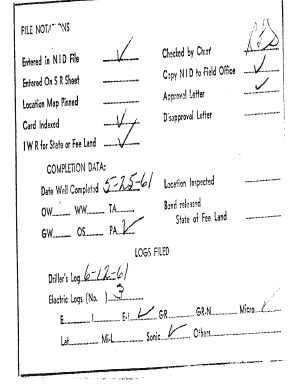 FILE NOTATIONS
Entered in N I D File ✓
Entered On S R Sheet
Location Map Pinned
Card Indexed ✓
I W R for State or Fee Land ✓
Checked by Chief
Copy N I D to Field Office ✓
Approval Letter ✓
Disapproval Letter
COMPLETION DATA:
Date Well Completed 5-25-61
OW WW TA
GW OS PA ✓
Location Inspected
Bond released
State of Fee Land
LOGS FILED
Driller's Log 6-12-61
Electric Logs (No. ) 3
E I E-I ✓ GR GR-N Micro ✓
Lat Mi-L Sonic ✓ Others